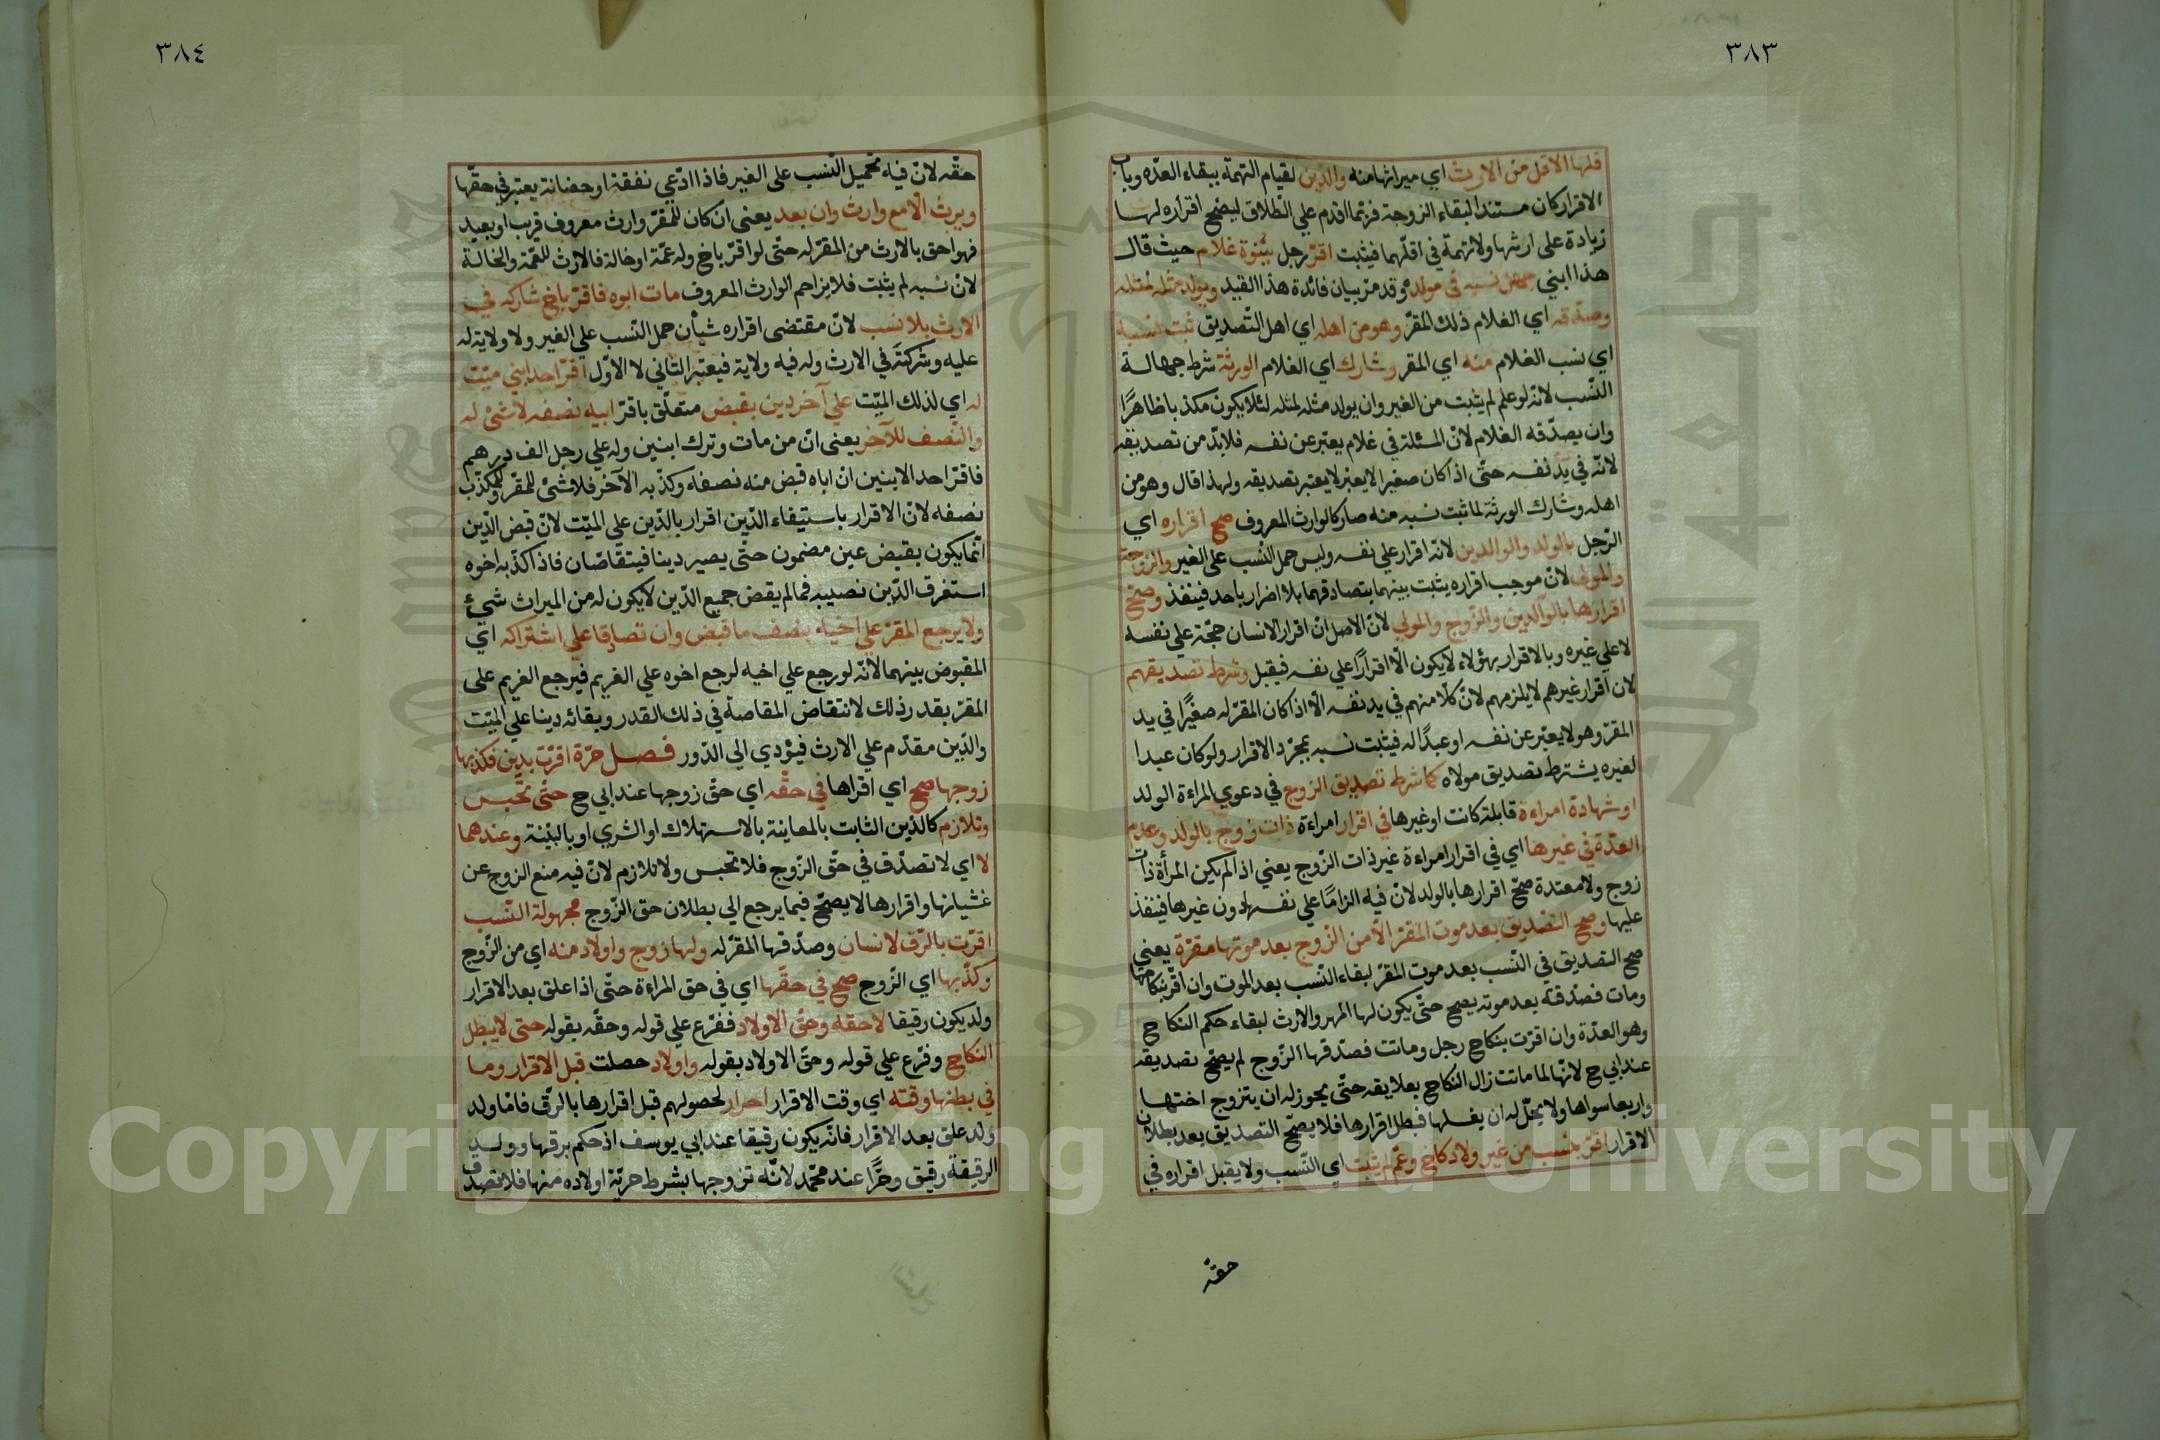 ٣٨٣
فلها الاقل من الارث اي ميراثها منه والدين لقيام التهمة ببقاء العدة وباب
الاقرار كان مستندا لبقاء الزوجة فربما اقدم علي الطلاق ليصح اقراره لها
زيادة على ارثها ولا تهمة في اقلهما فيثبت اقر رجل ببنوة غلام حيث قال
هذا ابني جهل نسبه في مولده وقد مر بيان فائدة هذا القيد ويولد مثله لمثله
وصدقه اي الغلام ذلك المقر وهو من اهله اي اهل التصديق ثبت نسبه
اي نسب الغلام منه اي المقر وشارك اي الغلام الورثة شرط جهالة
النسب لانه لو علم لم يثبت من الغير وان يولد مثله لمثله لئلا يكون مكذبا ظاهرا
وان يصدقه الغلام لان المسئلة في غلام يعبر عن نفسه فلا بد من تصديقه
لانه في يد نفسه حتى اذا كان صغيرا لا يعبر لا يعتبر تصديقه ولهذا قال وهو من
اهله وشارك الورثة لما ثبت نسبه منه صار كالوارث المعروف صح اقراره اي
الرجل بالولد والوالدين لانه اقرار علي نفسه وليس حمل النسب على الغير والزوجة
والمولى لان موجب اقراره يثبت بينهما بتصادقهما بلا اضرار باحد فينفذ وصح
اقرارها بالوالدين والزوج والمولي لان الاصل ان اقرار الانسان حجة علي نفسه
لا علي غيره وبالاقرار بهؤلاء لا يكون الا اقرارا علي نفسه فيقبل وشرط تصديقهم
لان اقرار غيرهم لا يلزمهم لان كلا منهم في يد نفسه الا اذا كان المقر له صغيرا في يد
المقر وهو لا يعبر عن نفسه او عبدا له فيثبت نسبه بمجرد الاقرار ولو كان عبدا
لغيره يشترط تصديق مولاه كما شرط تصديق الزوج في دعوي المراءة الولد
او شهادة امراءة قابلة كانت او غيرها في اقرار امراءة ذات زوج بالولد وبعدم
العدة في غيرها اي في اقرار امراءة غير ذات الزوج يعني اذا لم يكن المرأة ذات
زوج ولا معتدة صح اقرارها بالولد لان فيه الزاما علي نفسها دون غيرها فينفذ
عليها وصح التصديق بعد موت المقر الا من الزوج بعد موتها مقرة يعني
صح التصديق في النسب بعد موت المقر لبقاء النسب بعد الموت وان اقر بنكاحها
ومات فصدقته بعد موته يصح حتى يكون لها المهر والارث لبقاء حكم النكاح
وهو العدة وان اقرت بنكاح رجل وماتت فصدقها الزوج لم يصح تصديقه
عند ابي ح لانها لما ماتت زال النكاح بعلايقه حتى يجوز له ان يتزوج اختها
واربعا سواها ولا يحل له ان يغسلها فبطل اقرارها فلا يصح التصديق بعد بطلان
الاقرار اقر بنسب من غير ولاد كاخ وعم لم يثبت اي النسب ولا يقبل اقراره في
حقه
٣٨٤
حقه لان فيه تحميل النسب على الغير فاذا ادعي نفقة او حضانة يعتبر في حقها
ويرث الا مع وارث وان بعد يعني ان كان للمقر وارث معروف قريب او بعيد
فهو احق بالارث من المقر له حتى لو اقر باخ وله عمة او خالة فالارث للعمة والخالة
لان نسبه لم يثبت فلا يزاحم الوارث المعروف مات ابوه فاقر باخ شاركه في
الارث بلا نسب لان مقتضى اقراره شيأن حمل النسب علي الغير ولا ولاية له
عليه وشركته في الارث وله فيه ولاية فيعتبر الثاني لا الاول اقر احد ابني ميت
له اي لذلك الميت علي آخر دين بقبض متعلق باقر ابيه نصفه لا شئ له
والنصف للآخر يعني ان من مات وترك ابنين وله علي رجل الف درهم
فاقر احد الابنين ان اباه قبض منه نصفه وكذبه الآخر فلا شئ للمقر وللمكذب
نصفه لان الاقرار باستيفاء الدين اقرار بالدين علي الميت لان قبض الدين
انما يكون بقبض عين مضمون حتى يصير دينا فيتقاصان فاذا كذبه اخوه
استغرق الدين نصيبه فما لم يقض جميع الدين لا يكون له من الميراث شئ
ولا يرجع المقر علي اخيه بنصف ما قبض وان تصادقا علي اشتراكه اي
المقبوض بينهما لانه لو رجع علي اخيه لرجع اخوه علي الغريم فيرجع الغريم على
المقر بقدر ذلك لانتقاض المقاصة في ذلك القدر وبقائه دينا علي الميت
والدين مقدم علي الارث فيؤدي الي الدور فصل حرة اقرت بدين فكذبها
زوجها صح اي اقراها في حقه اي حق زوجها عند ابي ح حتى تحبس
وتلازم كالدين الثابت بالمعاينة بالاستهلاك او الشري او بالبينة وعندهما
لا اي لا تصدق في حق الزوج فلا تحبس ولا تلازم لان فيه منع الزوج عن
غشيانها واقرارها لا يصح فيما يرجع الي بطلان حق الزوج مجهولة النسب
اقرت بالرق لانسان وصدقها المقر له ولها زوج واولاد منه اي من الزوج
وكذبها اي الزوج صح في حقها اي في حق المراءة حتى اذا علق بعد الاقرار
ولد يكون رقيقا لا حقه وحق الاولاد ففرع علي قوله وحقه بقوله حتى لا يبطل
النكاح وفرع علي قوله وحق الاولاد بقوله واولاد حصلت قبل الاقرار وما
في بطنها وقته اي وقت الاقرار احرار لحصولهم قبل اقرارها بالرق فاما ولد
ولد علق بعد الاقرار فانه يكون رقيقا عند ابي يوسف اذ حكم برقها وولد
الرقيقة رقيق وحرا عند محمد لانه تزوجها بشرط حرية اولاده منها فلا تصدق
Copyright © King Saud University